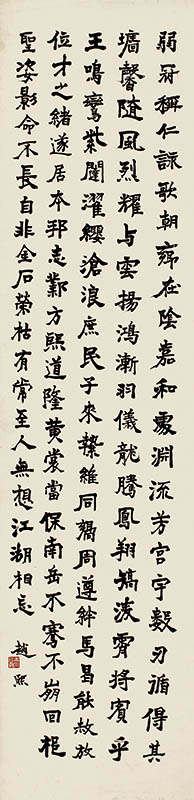 弱冠稱仁詠歌朝鄉在陰嘉和處淵流芳宮宇數刃循得其
墻馨隨風烈耀与雲揚鴻漸羽儀龍騰鳳翔矯淩霄將賓乎
王鳴鸞紫闥濯纓滄浪庶民子來縶維同嚮周遵絆馬曷能赦放
位才之緒遂居本邦志鄴方熙道隆黃裳當保南岳不騫不崩回
聖姿影命不長自非金石榮枯有常至人無想江湖相忘
趙熙